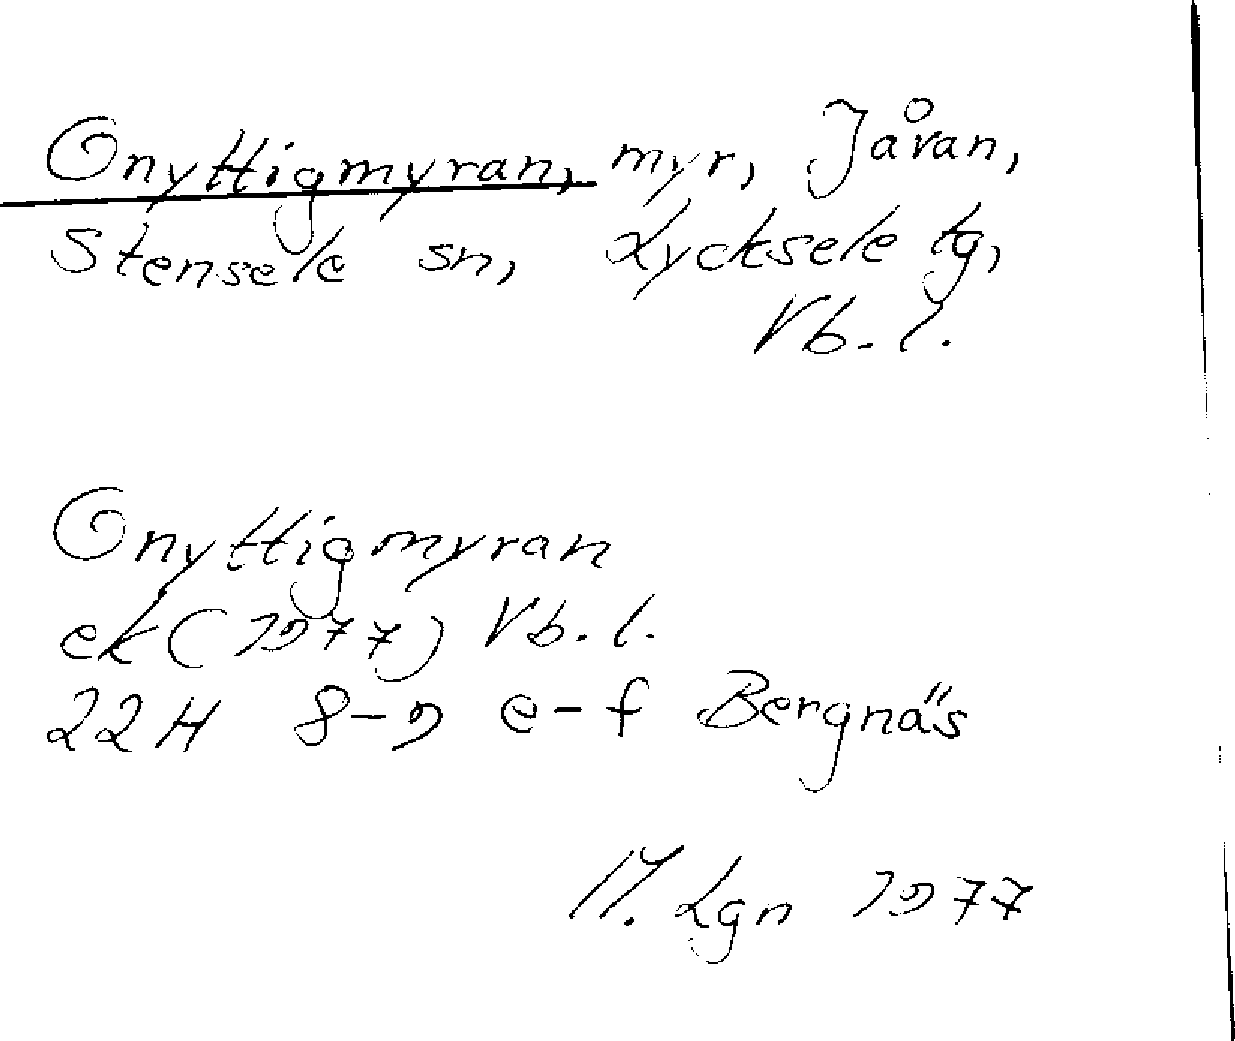 Onyttigmyran, myr, Jåvan,
Stensele sn, Lycksele tg,
Vb. l.
Onyttigmyran
ek (1977) Vb. l.
22H 8-9 e-f Bergnäs
M. Lgn 1977